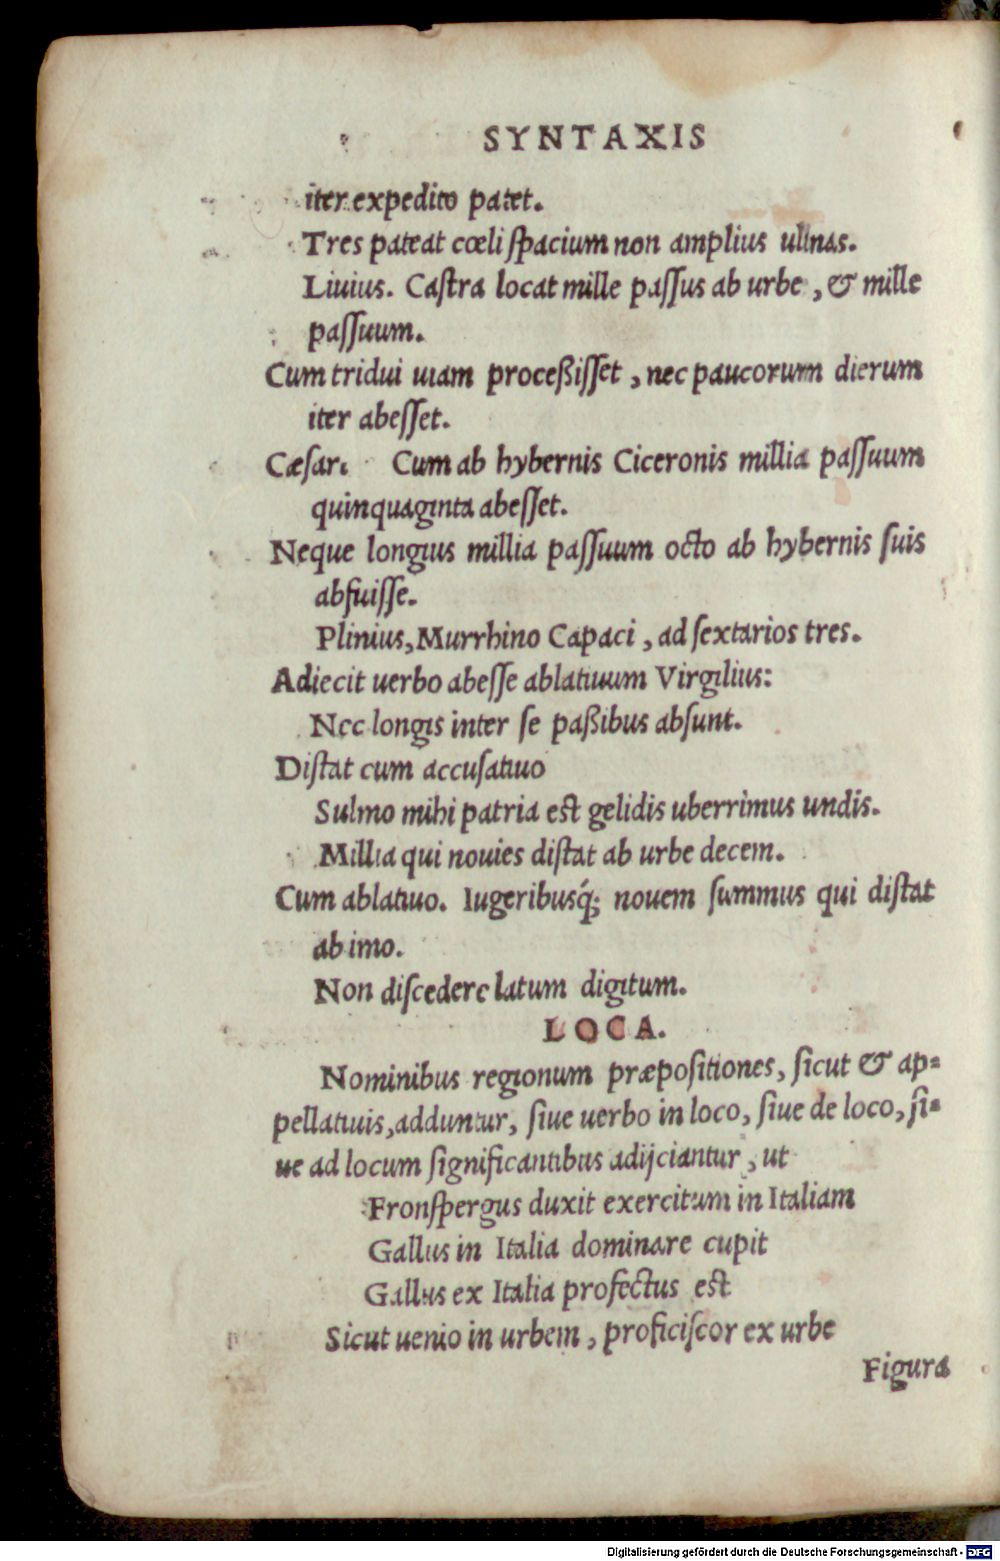 SYNTAXIS
iter expedito patet.
Tres pateat cœli spacium non amplius ulnas.
Liuius. Castra locat mille passus ab urbe, & mille
passuum.
Cum tridui uiam proceßisset, nec paucorum dierum
iter abesset.
Cæsar. Cum ab hybernis Ciceronis millia passuum
quinquaginta abesset.
Neque longius millia passuum octo ab hybernis suis
abfuisse.
Plinius, Murrhino Capaci, ad sextarios tres.
Adiecit uerbo abesse ablatiuum Virgilius:
Nec longis inter se paßibus absunt.
Distat cum accusatiuo
Sulmo mihi patria est gelidis uberrimus undis.
Millia qui nouies distat ab urbe decem.
Cum ablatiuo. Iugeribusq́; nouem summus qui distat
ab imo.
Non discedere latum digitum.
LOCA.
Nominibus regionum præpositiones, sicut & ap=
pellatiuis, adduntur, siue uerbo in loco, siue de loco, si=
ue ad locum significantibus adijciantur, ut
Fronspergus duxit exercitum in Italiam
Gallus in Italia dominare cupit
Gallus ex Italia profectus est
Sicut uenio in urbem, proficiscor ex urbe
Figura
Digitalisierung gefördert durch die Deutsche Forschungsgemeinschaft - DFG